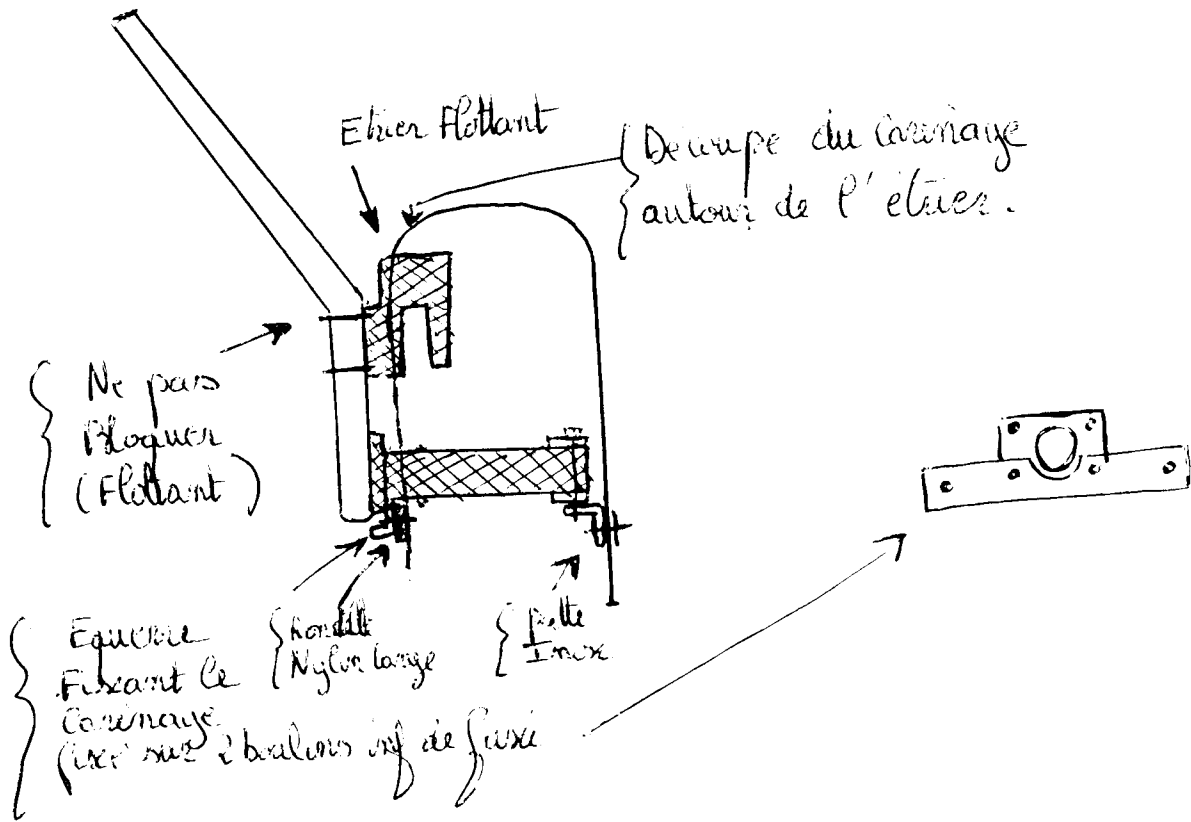 Etrier Flottant
Découpe du Carénage
autour de l'étrier.
Ne pas
Bloquer
(Flottant)
Equerre
Fixant le
Carénage
fixé sur 2 boulons inf de fusée
Rondelle
Nylon large
patte
Inox